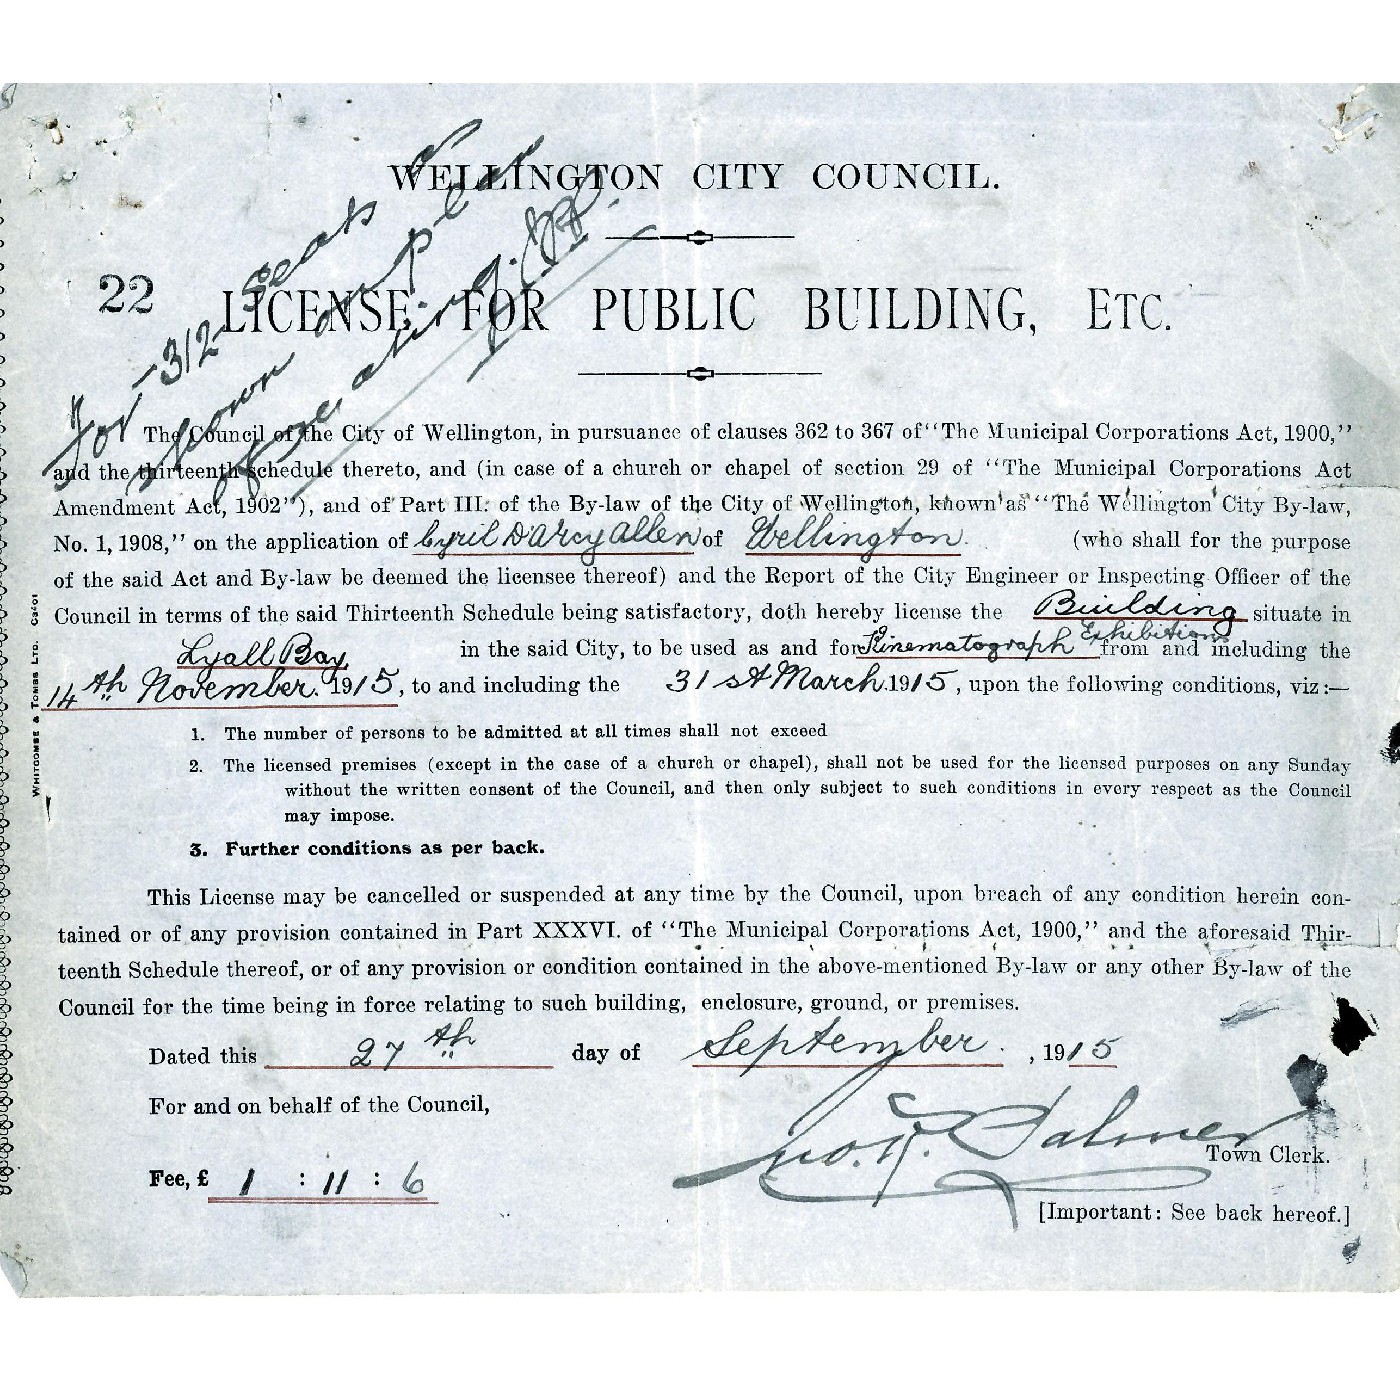 WELLINGTON CITY COUNCIL.
22
LICENSE FOR PUBLIC BUILDING, ETC.
For -312- seats as
shown on plan
of seating.
The Council of the City of Wellington, in pursuance of clauses 362 to 367 of "The Municipal Corporations Act, 1900,"
and the thirteenth schedule thereto, and (in case of a church or chapel of section 29 of "The Municipal Corporations Act
Amendment Act, 1902"), and of Part III. of the By-law of the City of Wellington, known as "The Wellington City By-law,
No. 1, 1908," on the application of Cyril D'Arcy Allen of Wellington. (who shall for the purpose
of the said Act and By-law be deemed the licensee thereof) and the Report of the City Engineer or Inspecting Officer of the
Council in terms of the said Thirteenth Schedule being satisfactory, doth hereby license the Building situate in
Lyall Bay in the said City, to be used as and for Kinematograph Exhibitions from and including the
14th November. 1915, to and including the 31st March. 1915, upon the following conditions, viz:—
1. The number of persons to be admitted at all times shall not exceed
2. The licensed premises (except in the case of a church or chapel), shall not be used for the licensed purposes on any Sunday
without the written consent of the Council, and then only subject to such conditions in every respect as the Council
may impose.
3. Further conditions as per back.
This License may be cancelled or suspended at any time by the Council, upon breach of any condition herein con-
tained or of any provision contained in Part XXXVI. of "The Municipal Corporations Act, 1900," and the aforesaid Thir-
teenth Schedule thereof, or of any provision or condition contained in the above-mentioned By-law or any other By-law of the
Council for the time being in force relating to such building, enclosure, ground, or premises.
Dated this 27th day of September. , 1915
For and on behalf of the Council,
Jno. R. Palmer
Town Clerk.
Fee, £ 1 : 11 : 6
[Important: See back hereof.]
WHITCOMBE & TOMBS LTD. C3401